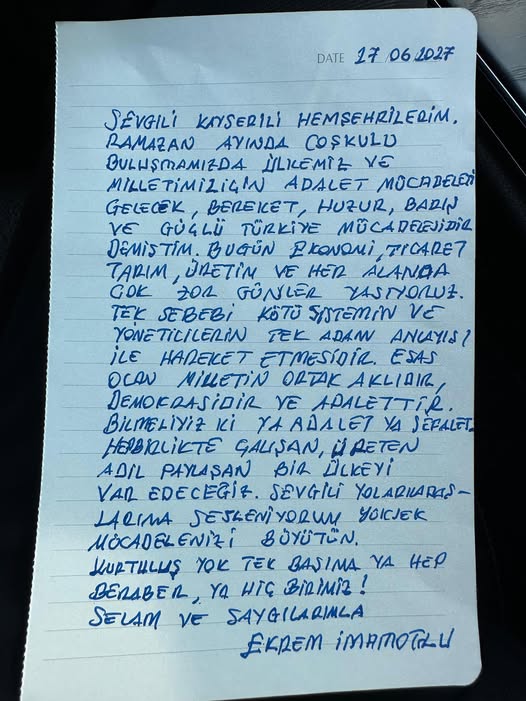 DATE 27/06/2027
SEVGİLİ KAYSERİLİ HEMŞEHRİLERİM.
RAMAZAN AYINDA COŞKULU
BULUŞMAMIZDA ÜLKEMİZ VE
MİLLETİMİZ İÇİN ADALET MÜCADELESİ
GELECEK, BEREKET, HUZUR, BARIŞ
VE GÜÇLÜ TÜRKİYE MÜCADELESİDİR
DEMİŞTİM. BUGÜN EKONOMİ, TİCARET
TARIM, ÜRETİM VE HER ALANDA
ÇOK ZOR GÜNLER YAŞIYORUZ.
TEK SEBEBİ KÖTÜ SİSTEMİN VE
YÖNETİCİLERİN TEK ADAM ANLAYIŞI
İLE HAREKET ETMESİDİR. ESAS
OLAN MİLLETİN ORTAK AKLIDIR,
DEMOKRASİDİR VE ADALETTİR.
BİLMELİYİZ Kİ YA ADALET YA SEFALET.
HEPBİRLİKTE ÇALIŞAN, ÜRETEN
ADİL PAYLAŞAN BİR ÜLKEYİ
VAR EDECEĞİZ. SEVGİLİ YOLARKADAŞ-
LARIMA SESLENİYORUM YÜKSEK
MÜCADELENİZİ BÜYÜTÜN.
KURTULUŞ YOK TEK BAŞIMA YA HEP
BERABER, YA HİÇ BİRİMİZ!
SELAM VE SAYGILARIMLA
EKREM İMAMOĞLU